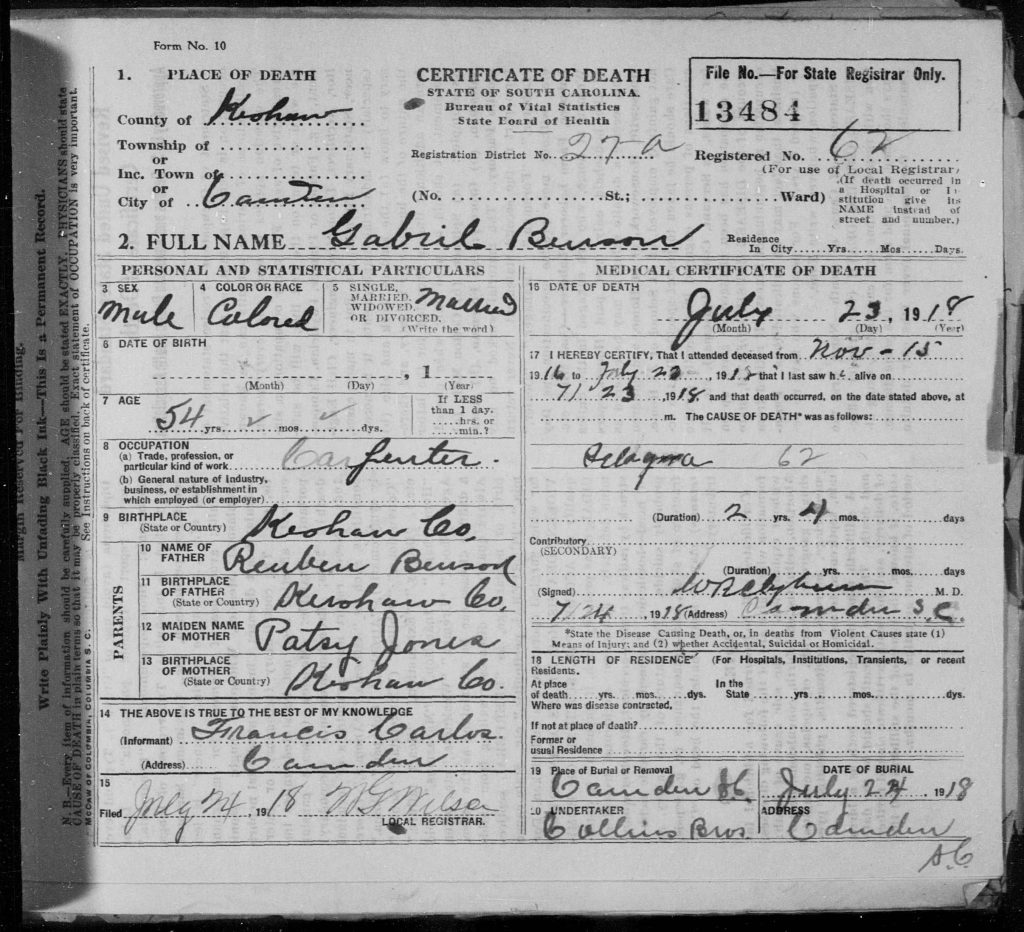 Form No. 10
1. PLACE OF DEATH
County of Kershaw
Township of
or
Inc. Town of
or
City of Camden
CERTIFICATE OF DEATH
STATE OF SOUTH CAROLINA.
Bureau of Vital Statistics
State Board of Health
File No.—For State Registrar Only.
13484
Registration District No. 27-a
Registered No. 62
(For use of Local Registrar)
(No. St.; Ward)
(If death occurred in
a Hospital or In-
stitution give its
NAME instead of
street and number.)
2. FULL NAME Gabriel Benson
Residence
In City Yrs. Mos. Days.
PERSONAL AND STATISTICAL PARTICULARS
3 SEX
Male
4 COLOR OR RACE
Colored
5 SINGLE,
MARRIED,
WIDOWED,
OR DIVORCED.
(Write the word)
Married
6 DATE OF BIRTH
, 1
(Month) (Day) (Year)
7 AGE
54 yrs. mos. dys.
If LESS
than 1 day.
hrs. or
min.?
8 OCCUPATION
(a) Trade, profession, or
particular kind of work Carpenter
(b) General nature of Industry,
business, or establishment in
which employed (or employer)
9 BIRTHPLACE
(State or Country) Kershaw Co.
PARENTS
10 NAME OF
FATHER Reuben Benson
11 BIRTHPLACE
OF FATHER
(State or Country) Kershaw Co.
12 MAIDEN NAME
OF MOTHER Patsy Jones
13 BIRTHPLACE
OF MOTHER
(State or Country) Kershaw Co.
14 THE ABOVE IS TRUE TO THE BEST OF MY KNOWLEDGE
(Informant) Francis Carlos
(Address) Camden
15
Filed July 24 1918
LOCAL REGISTRAR.
MEDICAL CERTIFICATE OF DEATH
15 DATE OF DEATH
July 23, 1918
(Month) (Day) (Year)
17 I HEREBY CERTIFY, That I attended deceased from Nov - 15
1916 to July 23, 1918 that I last saw h alive on
7/23, 1918 and that death occurred, on the date stated above, at
m. The CAUSE OF DEATH* was as follows:
62
(Duration) 2 yrs. 4 mos. days
Contributory
(SECONDARY)
(Duration) yrs. mos. days
(Signed) M. D.
7/24, 1918 (Address) Camden S.C.
*State the Disease Causing Death, or, in deaths from Violent Causes state (1)
Means of Injury; and (2) whether Accidental, Suicidal or Homicidal.
18 LENGTH OF RESIDENCE (For Hospitals, Institutions, Transients, or recent
Residents.
At place In the
of death yrs. mos. dys. State yrs. mos. dys.
Where was disease contracted,
If not at place of death?
Former or
usual Residence
19 Place of Burial or Removal
Camden SC.
DATE OF BURIAL
July 24 1918
20 UNDERTAKER
Collins Bros.
ADDRESS
Camden
S.C.
Margin Reserved For Binding.
Write Plainly With Unfading Black Ink—This Is a Permanent Record.
N. B.—Every item of information should be carefully supplied. AGE should be stated EXACTLY. PHYSICIANS should state
CAUSE OF DEATH in plain terms so that it may be properly classified. Exact statement of OCCUPATION is very important.
See Instructions on back of certificate.
McCAW OF COLUMBIA, COLUMBIA S. C.